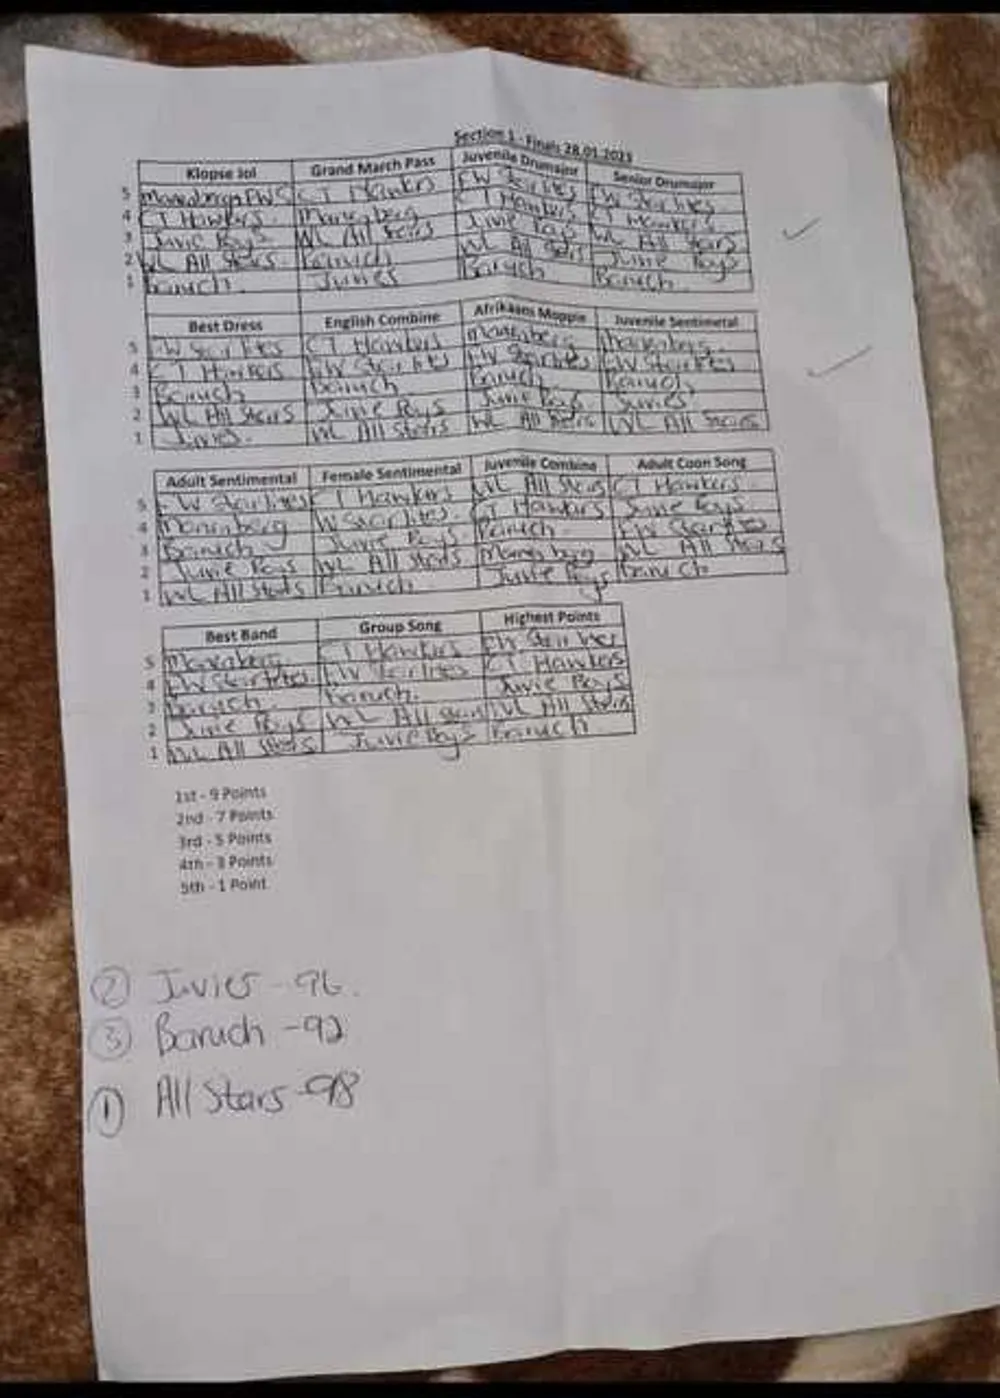 Section 1 - Finals 28.01.2023
Klopse Jol Grand March Pass Juvenile Drumajor Senior Drumajor
5 Manenberg EWS CT Hawkers EW Starlites EW Starlites
4 CT Hawkers. Manenberg CT Hawkers CT Hawkers
3 Juvie Boys WL All Stars Juvie Boys WL All Stars
2 WL All Stars Baruch WL All Stars Juvie Boys
1 Baruch. Juvies Baruch Baruch.
Best Dress English Combine Afrikaans Moppie Juvenile Sentimetal
5 EW Starlites CT Hawkers Manenberg Manenberg.
4 CT Hawkers EW Starlites EW Starlites EW Starlites
3 Baruch Baruch Baruch Baruch
2 WL All Stars Juvie Boys Juvie Boys Juvies
1 Juvies. WL All Stars WL All Stars WL All Stars
Adult Sentimental Female Sentimental Juvenile Combine Adult Coon Song
5 EW Starlites CT Hawkers WL All Stars CT Hawkers
4 Manenberg EW Starlites. CT Hawkers Juvie Boys
3 Baruch Juvie Boys Baruch EW Starlites
2 Juvie Boys WL All Stars Manenberg WL All Stars
1 WL All Stars Baruch Juvie Boys Baruch
Best Band Group Song Highest Points
5 Manenberg CT Hawkers EW Starlites
4 EW Starlites EW Starlites CT Hawkers
3 Baruch Baruch. Juvie Boys
2 Juvie Boys WL All Stars WL All Stars
1 WL All Stars Juvie Boys Baruch
1st - 9 Points
2nd - 7 Points
3rd - 5 Points
4th - 3 Points
5th - 1 Point
2 Juvies - 96.
3 Baruch - 92
1 All Stars - 98